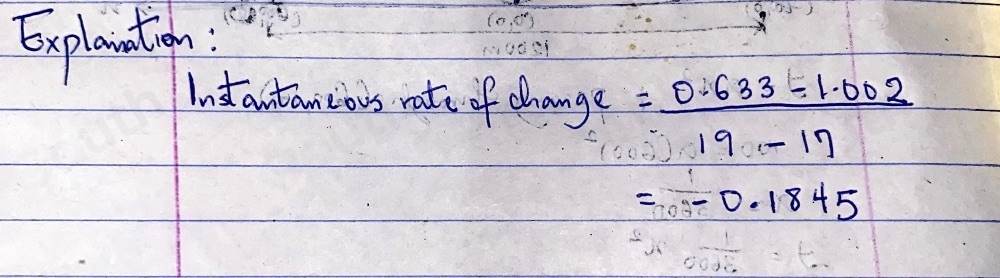 Explaination :
Instantaneous rate of change = 0.633 - 1.002
19 - 17
= - 0.1845